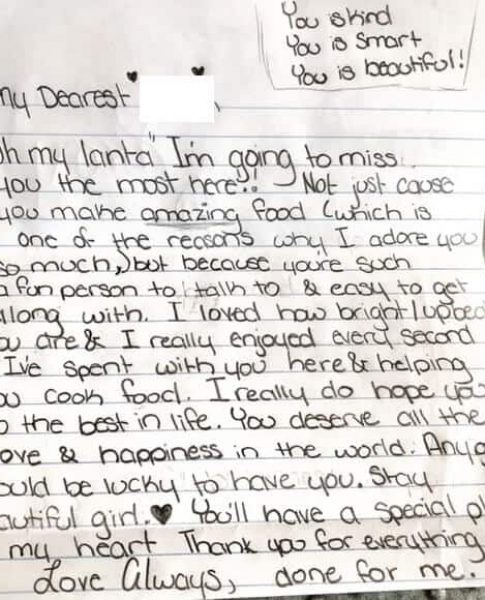 You is kind
You is Smart
You is beautiful!
My Dearest
Oh my lanta" I'm going to miss
you the most here!! Not just cause
you make amazing food (which is
one of the reasons why I adore you
so much,) but because you're such
a fun person to talk to & easy to get
along with. I loved how bright/upbeat
you are & I really enjoyed every second
I've spent with you here & helping
you cook food. I really do hope you
o the best in life. You deserve all the
love & happiness in the world. Any g
would be lucky to have you. Stay
beautiful girl. ♥ You'll have a special pl
my heart Thank you for everything
Love Always, done for me.